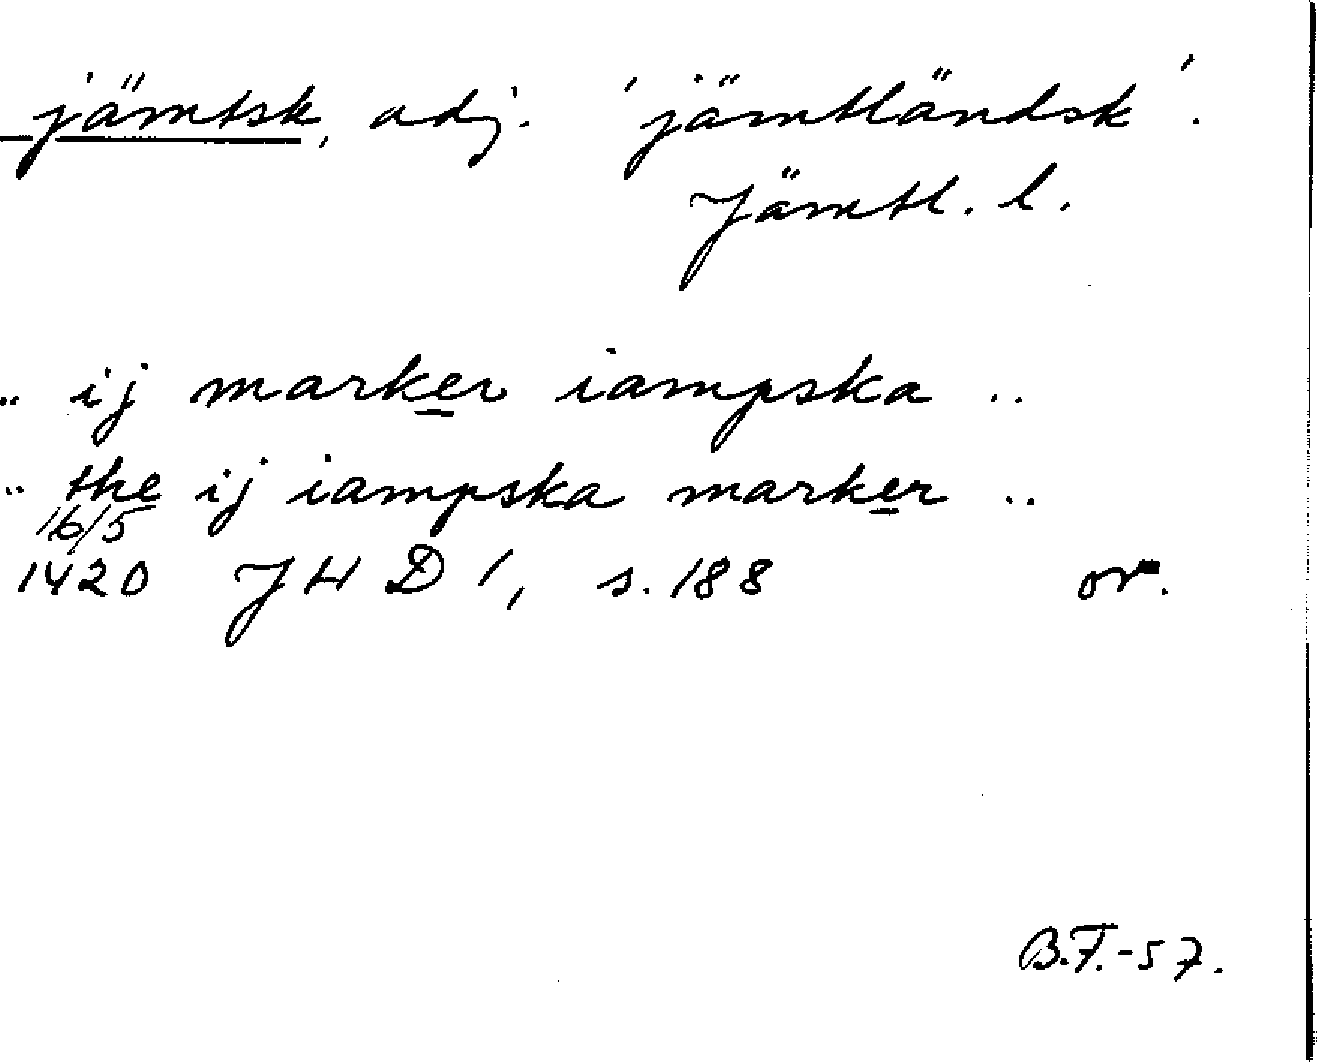 jämtsk, adj. 'jämtländsk'.
Jämtl. l.
.. ij marker iampska ..
.. the ij iampska marker ..
16/5
1420 JHD 1, s. 188 or.
B.F.-57.